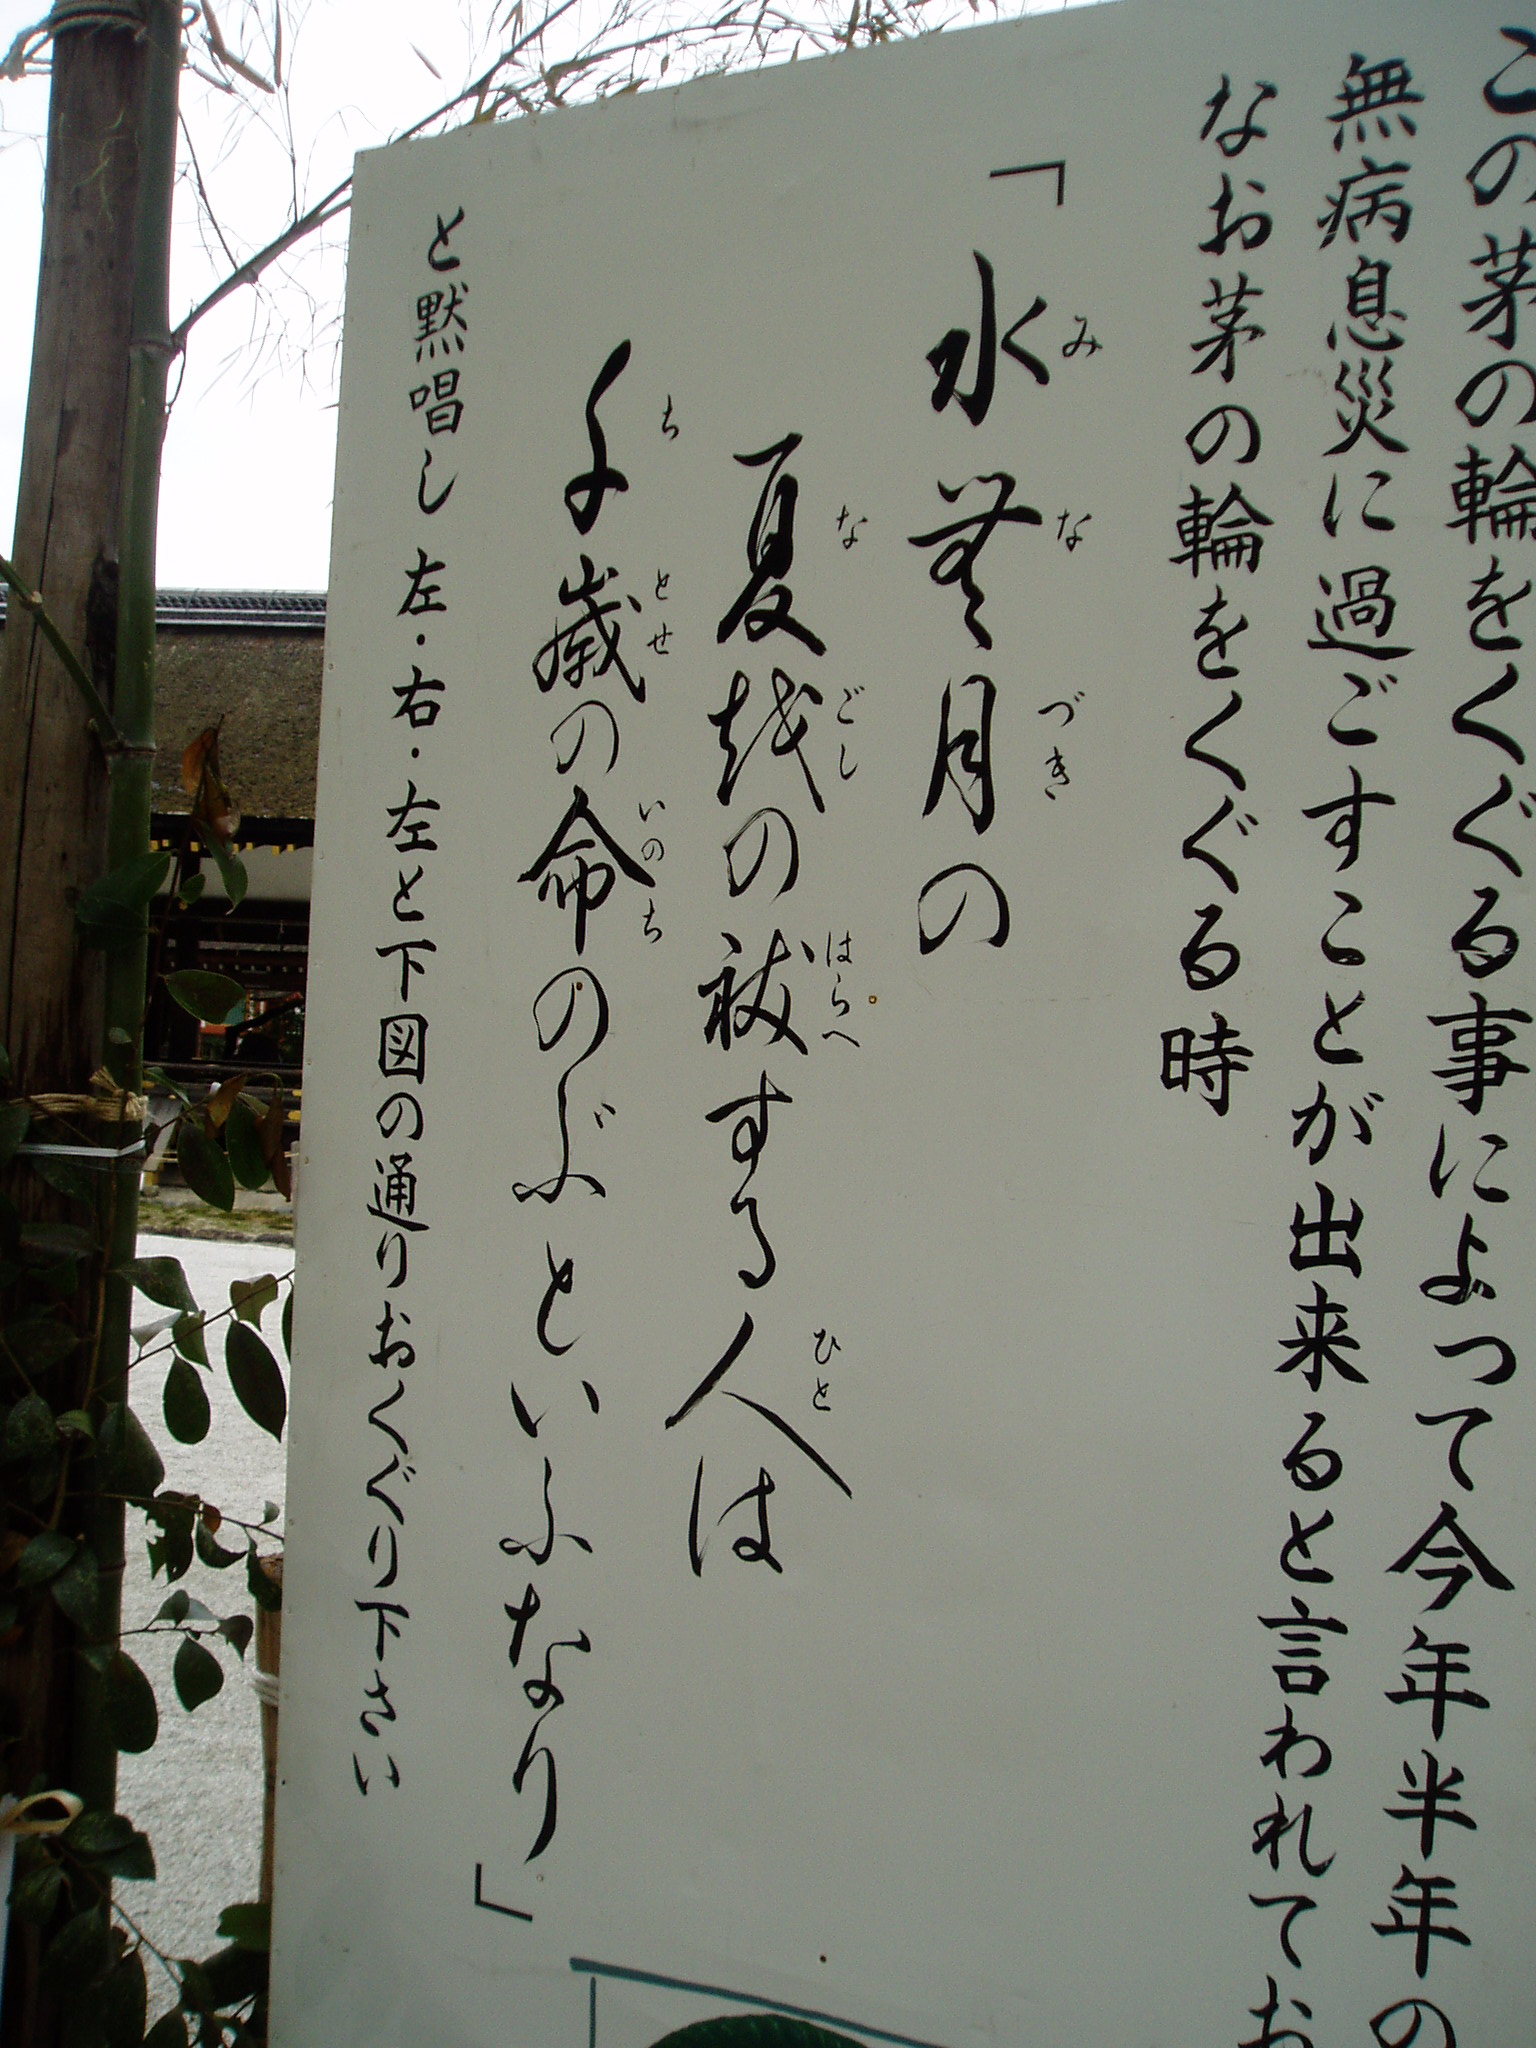 この茅の輪をくぐる事によって今年半年の
無病息災に過ごすことが出来ると言われてお
なお茅の輪をくぐる時
「水無月の
みなづき
夏越の祓する人は
なごし はらへ ひと
千歳の命のぶといふなり」
ちとせ いのち
と黙唱し 左・右・左と下図の通りおくぐり下さい